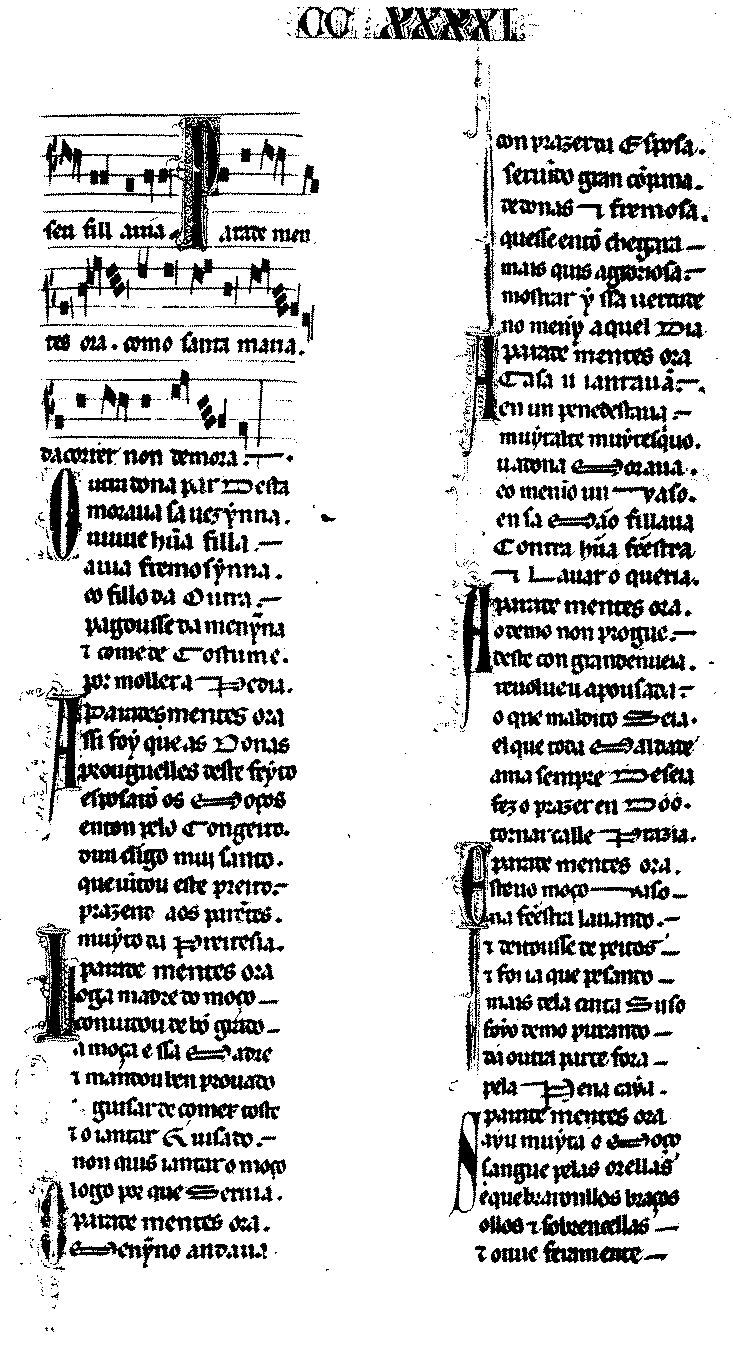 CC XXXXI
seu fill auia. Parade men
tes ora. como santa maria.
dacorrer non demora.
Outra dona par Desta
moraua sa uezỹnna.
uuue hũa filla.
auia fremosỹnna.
co fillo da Outra.
pagousse da menỹna
⁊ come de Costume.
por moller a Pedia.
Parade mentes ora
Assi foy que as Donas
prouguelles deste feyto
esposarõ os Moços
enton pelo Congeito.
dun clligo mui santo.
que uirou este preito.
prazendo aos parẽtes.
muyto da Preitesia.
parade mentes ora
Loga madre do moço
conuidou de bõ grado
a moça e ssa Madre
⁊ mandou ben prouado
guisar de comer toste
⁊ o iantar Guisado.
non quis iantar o moço
logo por que Seruia.
parade mentes ora.
O Menỹno andaua
con prazer da Esposa.
seruĩdo gran cõpan̄a.
de donas ⁊ fremosa.
quesse entõ chegara
mais quis a gloriosa.
mostrar ẏ ssa uertude
no menỹ aquel Dia
parade mentes ora
A Casa u iantauã.
en un penedestaua.
muyt alte muyt esquo.
u a dona Moraua.
eo menĩo un vaso.
en sa Mão fillaua
Contra hũa feestra
⁊ Lauar o queria.
parade mentes ora.
Ao demo non progue.
deste con grand enueia.
reuolueu a pousada.
o que maldito Seia.
el que toda Maldade
ama sempre Deseia
fez o prazer en Doo.
tornar talle Perazia.
parade mentes ora.
Esteuo moço vaso
na feestra lauando.
⁊ deitousse de peitos
⁊ foi ia que pesando
mais dela cinta Suso
foyo demo puxando
da outra parte fora
pela Pena cayã.
parade mentes ora
Sayu muyta o Moço
sangue pelas orellas
e quebraronllos braços
ollos ⁊ sobrencellas
⁊ ouue feramente